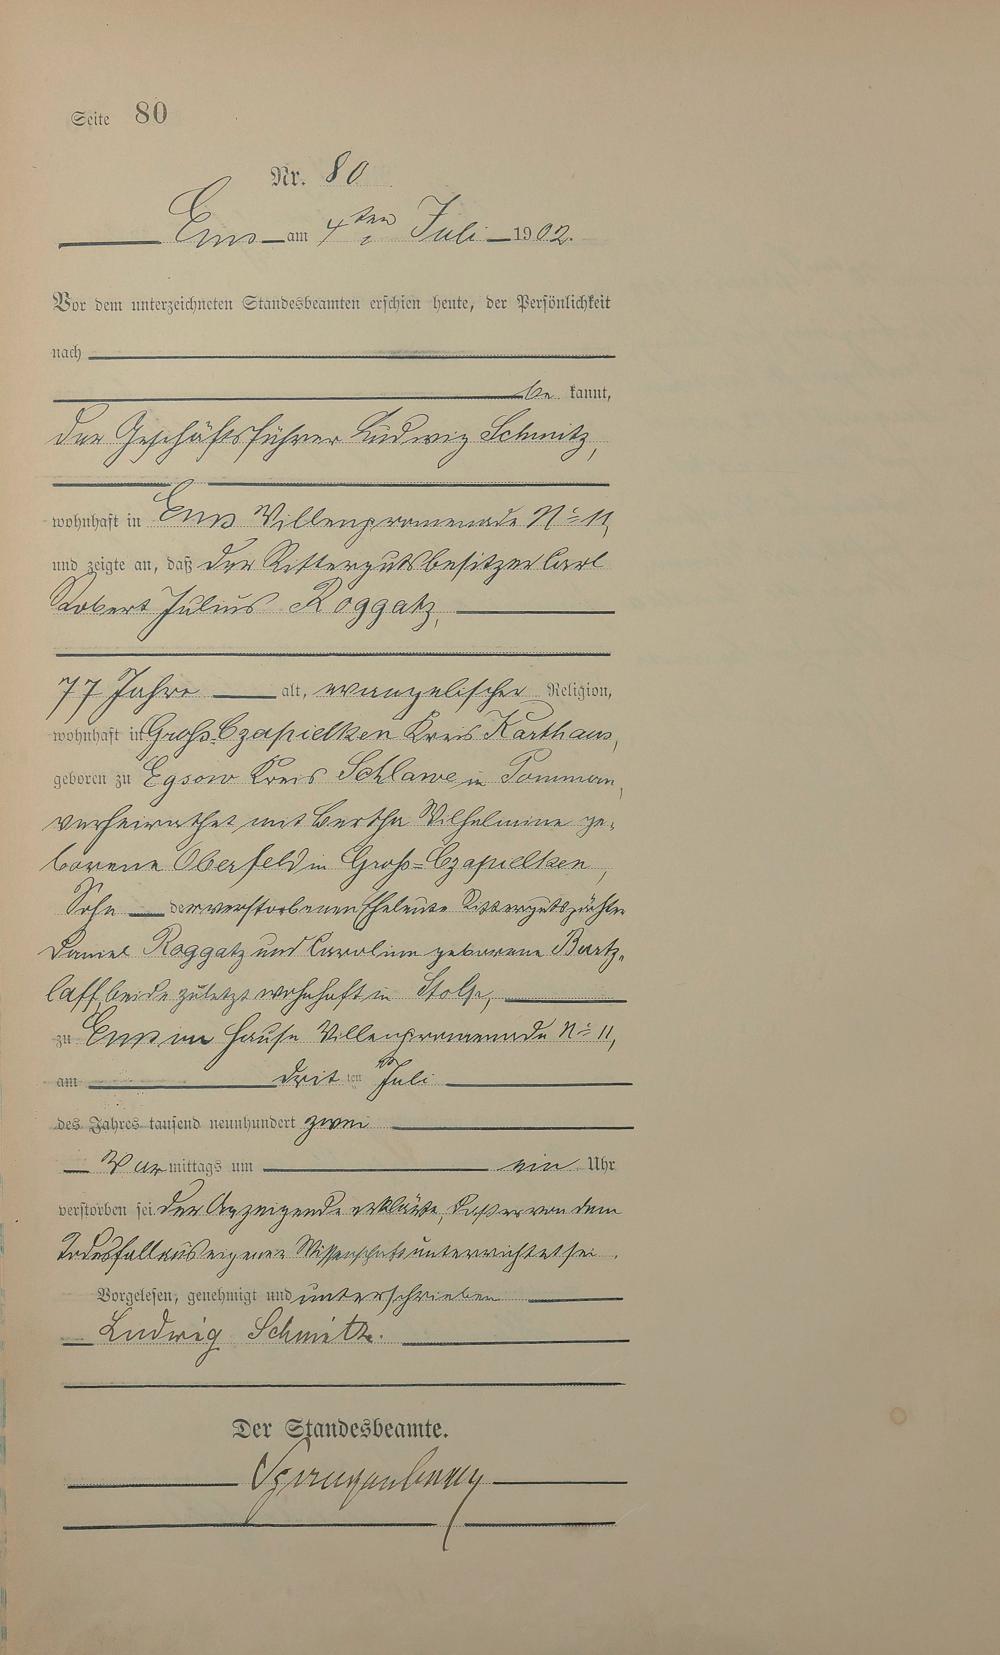 Seite 80
Nr. 80
Ems am 4ten Juli 1902.
Vor dem unterzeichneten Standesbeamten erschien heute, der Persönlichkeit
nach
be kannt,
der Geschäftsführer Ludwig Schmitz,
wohnhaft in Ems Villenpromenade No 11,
und zeigte an, daß der Rittergutsbesitzer Carl
Robert Julius Roggatz,
77 Jahre alt, evangelischer Religion,
wohnhaft in Groß-Czapielken Kreis Karthaus,
geboren zu Egsow Kreis Schlawe in Pommern,
verheirathet mit Bertha Wilhelmine ge-
borene Oberfeld in Groß-Czapielken,
Sohn der verstorbenen Eheleute Rittergutspächter
Daniel Roggatz und Caroline geborene Bartz-
laff, beide zuletzt wohnhaft in Stolp,
zu Ems im Hause Villenpromenade No 11,
am dritten Juli
des Jahres tausend neunhundert zwei
Vormittags um ein Uhr
verstorben sei. Der Anzeigende erklärte, daß er von dem
Todesfall aus eigener Wissenschaft unterrichtet sei.
Vorgelesen, genehmigt und unterschrieben
Ludwig Schmitz.
Der Standesbeamte.